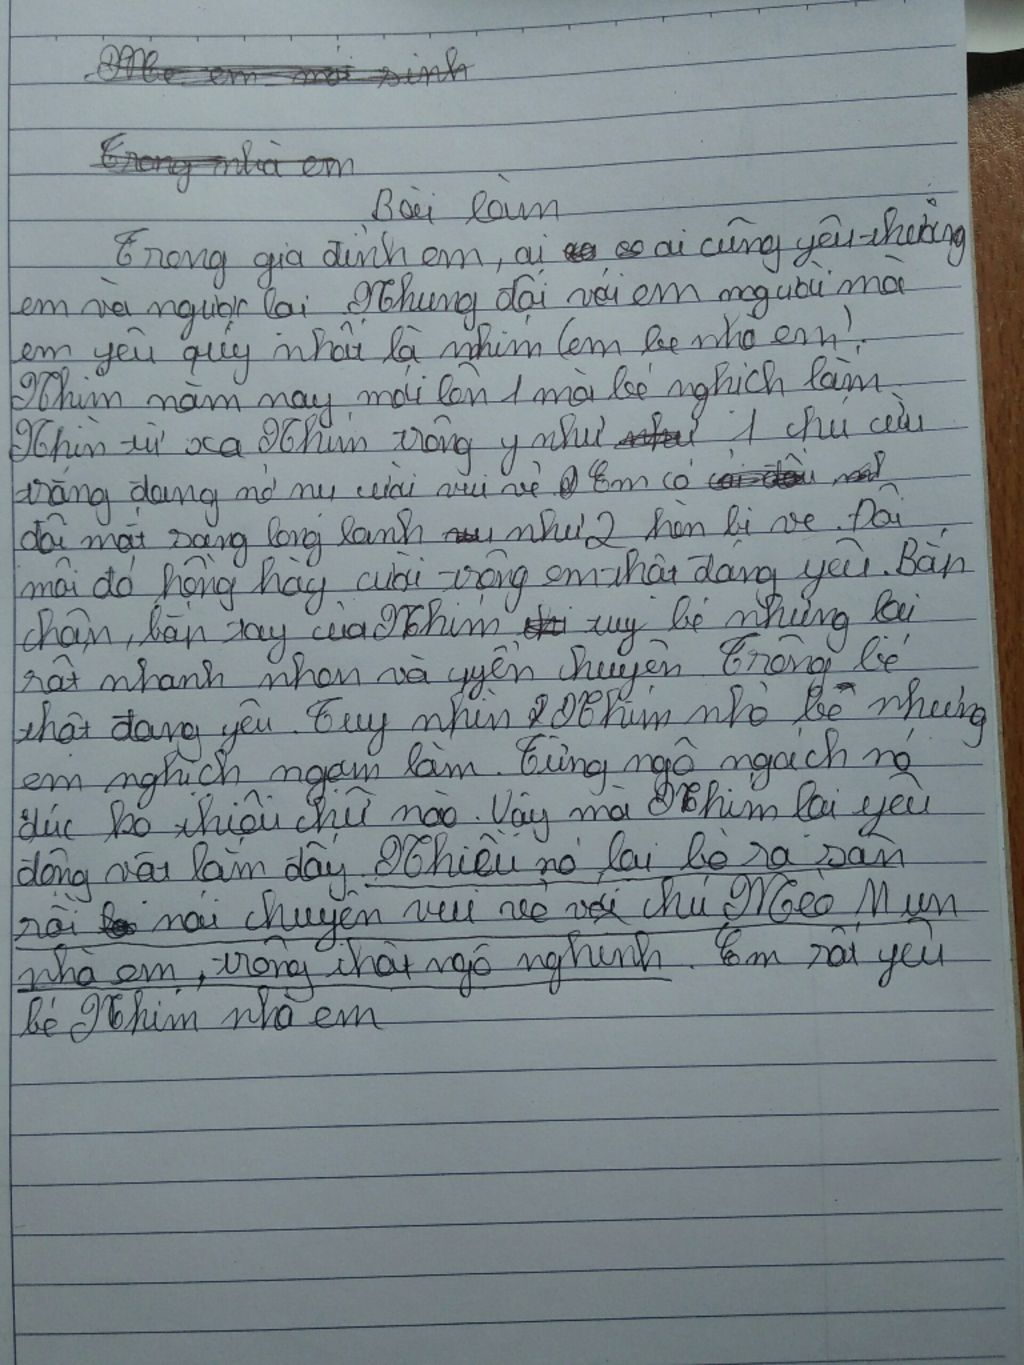 Mẹ em mới sinh
Trong nhà em
Bài làm
Trong gia đình em, ai ai cũng yêu thương
em và ngược lại. Nhưng đối với em người mà
em yêu quý nhất là nhím (em bé nhà em).
Nhím năm nay mới lên 1 mà bé nghịch lắm.
Nhìn từ xa Nhím trông y như như 1 chú cừu
trắng đang nở nụ cười vui vẻ. Em có
đôi mắt sáng long lanh như 2 hòn bi ve. Đôi
môi đỏ hồng hay cười trông em thật đáng yêu. Bàn
chân, bàn tay của Nhím tuy bé nhưng lại
rất nhanh nhẹn và uyển chuyển. Trông bé
thật đáng yêu. Tuy nhìn Nhím nhỏ bé nhưng
em nghịch ngợm lắm. Từng ngõ ngách nó
đúc ko thiếu chỗ nào. Vậy mà Nhím lại yêu
động vật lắm đấy. Nhiều nó lại bò ra sân
rồi nói chuyện vui vẻ với chú Mèo Mun
nhà em, trông thật ngộ nghĩnh. Em rất yêu
bé Nhím nhà em